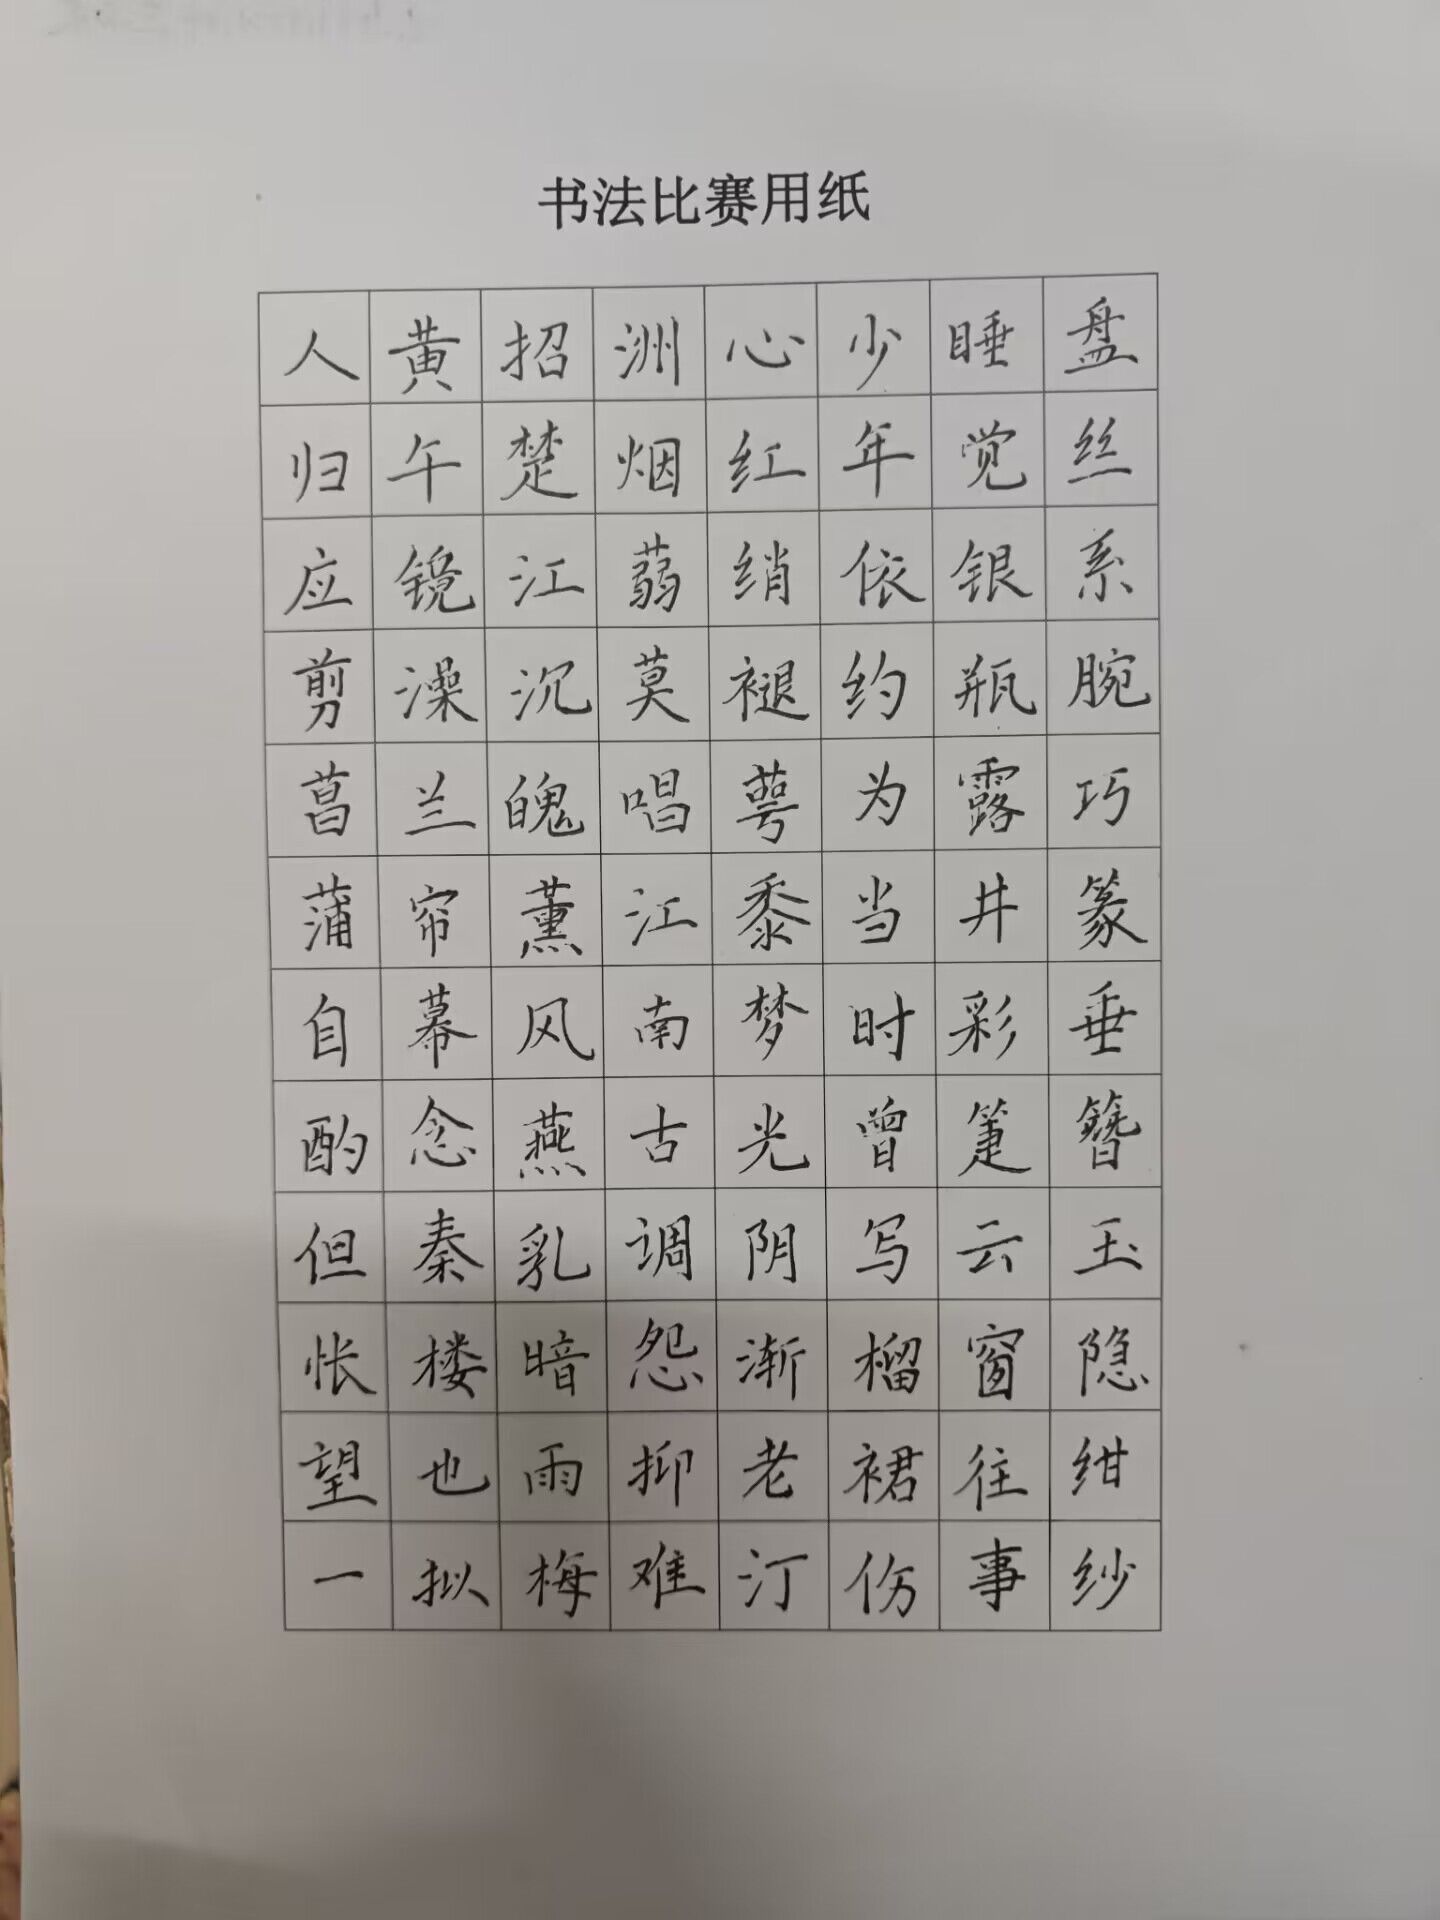 书法比赛用纸
盘丝系腕巧篆垂簪玉隐绀纱
睡觉银瓶露井彩箑云窗往事
少年依约为当时曾写榴裙伤
心红绡褪萼黍梦光阴渐老汀
洲烟蒻莫唱江南古调怨抑难
招楚江沉魄薰风燕乳暗雨梅
黄午镜澡兰帘幕念秦楼也拟
人归应剪菖蒲自酌但怅望一